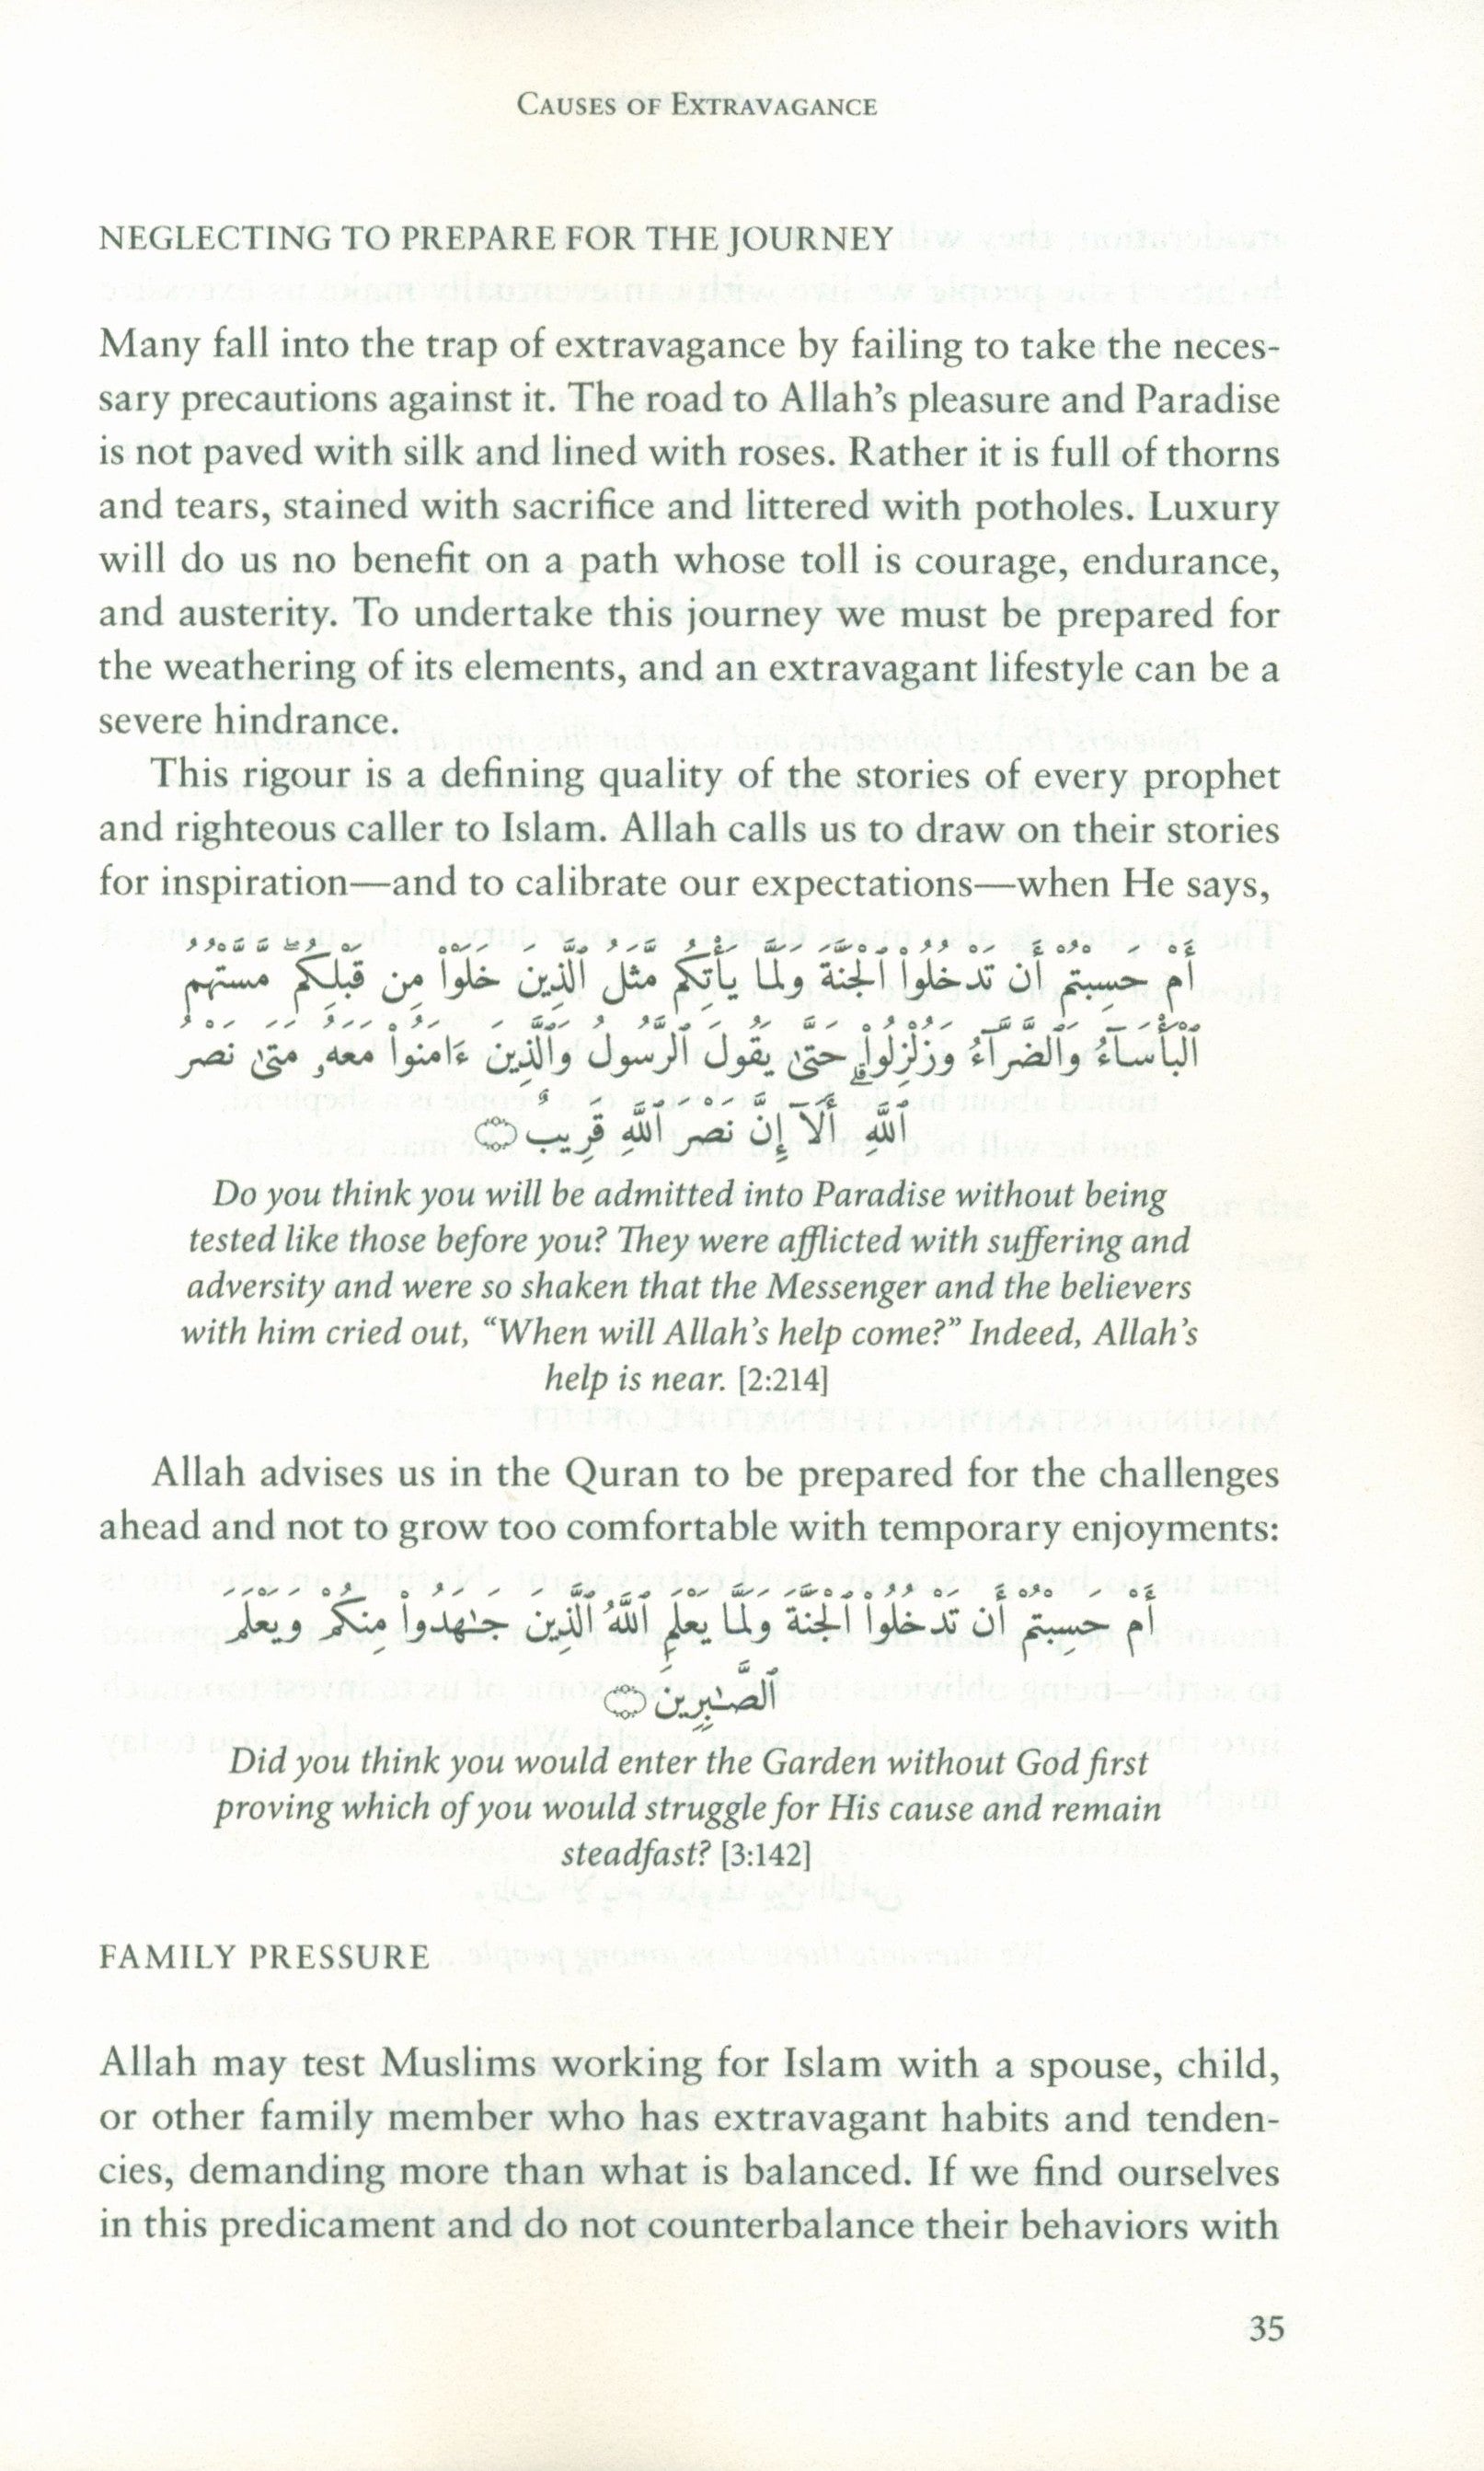 CAUSES OF EXTRAVAGANCE
NEGLECTING TO PREPARE FOR THE JOURNEY
Many fall into the trap of extravagance by failing to take the neces-
sary precautions against it. The road to Allah’s pleasure and Paradise
is not paved with silk and lined with roses. Rather it is full of thorns
and tears, stained with sacrifice and littered with potholes. Luxury
will do us no benefit on a path whose toll is courage, endurance,
and austerity. To undertake this journey we must be prepared for
the weathering of its elements, and an extravagant lifestyle can be a
severe hindrance.
This rigour is a defining quality of the stories of every prophet
and righteous caller to Islam. Allah calls us to draw on their stories
for inspiration—and to calibrate our expectations—when He says,
أَمْ حَسِبْتُمْ أَن تَدْخُلُوا۟ ٱلْجَنَّةَ وَلَمَّا يَأْتِكُم مَّثَلُ ٱلَّذِينَ خَلَوْا۟ مِن قَبْلِكُم ۖ مَّسَّتْهُمُ
ٱلْبَأْسَآءُ وَٱلضَّرَّآءُ وَزُلْزِلُوا۟ حَتَّىٰ يَقُولَ ٱلرَّسُولُ وَٱلَّذِينَ ءَامَنُوا۟ مَعَهُۥ مَتَىٰ نَصْرُ
ٱللَّهِ ۗ أَلَآ إِنَّ نَصْرَ ٱللَّهِ قَرِيبٌ
Do you think you will be admitted into Paradise without being
tested like those before you? They were afflicted with suffering and
adversity and were so shaken that the Messenger and the believers
with him cried out, “When will Allah’s help come?” Indeed, Allah’s
help is near. [2:214]
Allah advises us in the Quran to be prepared for the challenges
ahead and not to grow too comfortable with temporary enjoyments:
أَمْ حَسِبْتُمْ أَن تَدْخُلُوا۟ ٱلْجَنَّةَ وَلَمَّا يَعْلَمِ ٱللَّهُ ٱلَّذِينَ جَـٰهَدُوا۟ مِنكُمْ وَيَعْلَمَ
ٱلصَّـٰبِرِينَ
Did you think you would enter the Garden without God first
proving which of you would struggle for His cause and remain
steadfast? [3:142]
FAMILY PRESSURE
Allah may test Muslims working for Islam with a spouse, child,
or other family member who has extravagant habits and tenden-
cies, demanding more than what is balanced. If we find ourselves
in this predicament and do not counterbalance their behaviors with
35